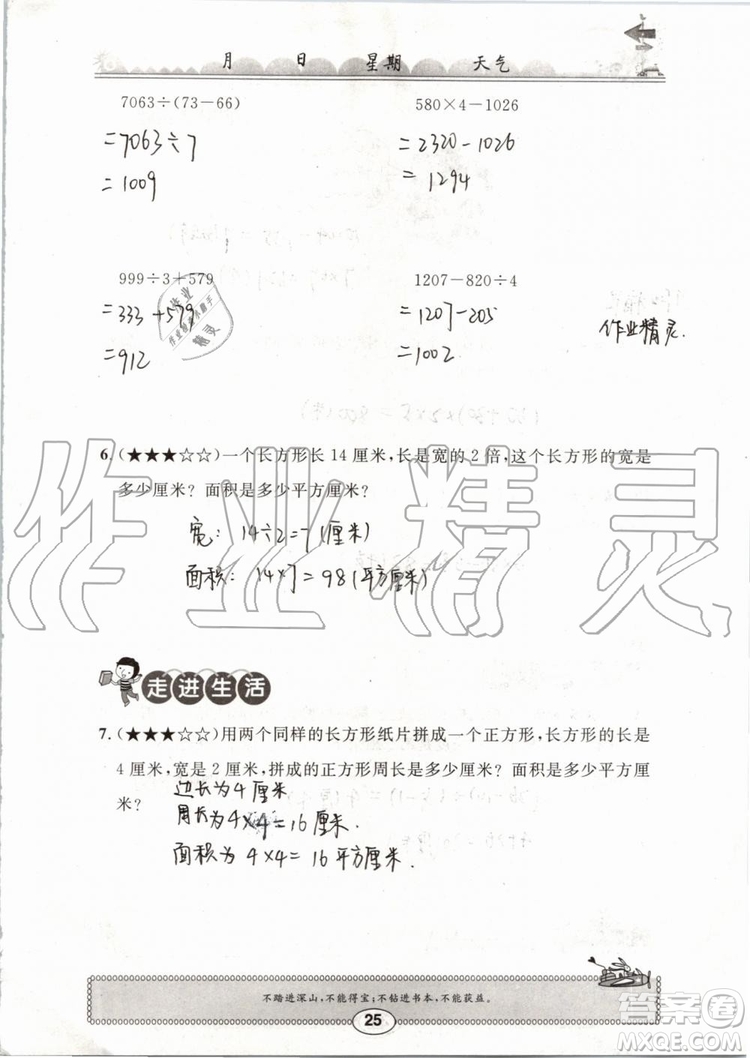 月 日 星期 天气
7063÷(73－66) 580×4－1026
=7063÷7 =2320-1026
=1009 =1294
999÷3＋579 1207－820÷4
=333+579 =1207-205
=912 =1002
作业精灵.
6.(★★★☆☆)一个长方形长 14 厘米,长是宽的 2 倍,这个长方形的宽是
多少厘米？面积是多少平方厘米？
宽: 14÷2=7(厘米)
面积: 14×7=98(平方厘米)
作业精灵
走进生活
7.(★★★☆☆)用两个同样的长方形纸片拼成一个正方形,长方形的长是
4 厘米,宽是 2 厘米,拼成的正方形周长是多少厘米？面积是多少平方厘
米？
边长为4厘米
周长为4×4=16厘米.
面积为4×4=16平方厘米.
不踏进深山,不能得宝;不钻进书本,不能获益。
25
答案圈
MXQE.COM